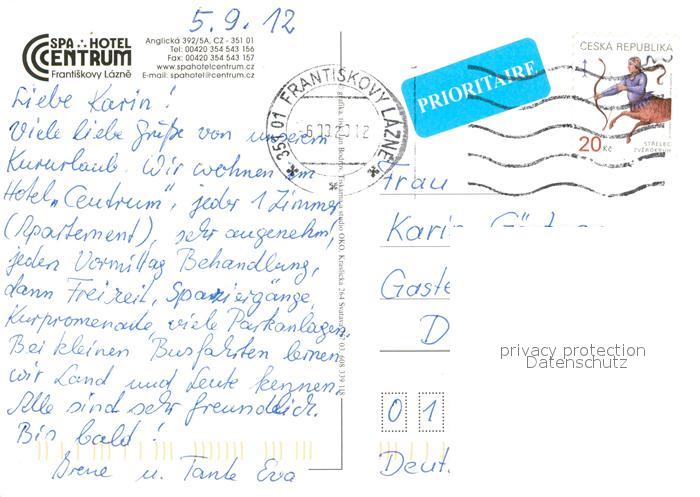 5.9.12
SPA HOTEL
CENTRUM
Františkovy Lázně
Anglická 392/5A, CZ - 351 01
Tel: 00420 354 543 156
Fax: 00420 354 543 157
www.spahotelcentrum.cz
E-mail: spahotel@centrum.cz
Liebe Karin!
Viele liebe Grüße von unserem
Kururlaub. Wir wohnen im
Hotel „Centrum", jeder 1 Zimmer
(Apartement), sehr angenehm,
jeden Vormittag Behandlung,
dann Freizeit, Spaziergänge,
Kurpromenade, viele Parkanlagen.
Bei kleinen Busfahrten lernen
wir Land und Leute kennen.
Alle sind sehr freundlich.
Bis bald!
Irene u. Tante Eva
351 01 FRANTIŠKOVY LÁZNĚ
PRIORITAIRE
ČESKÁ REPUBLIKA
20 Kč
STŘELEC
ZVĚROKRUH
Frau
Karin
Gaste
D
0 1
Deut
privacy protection
Datenschutz